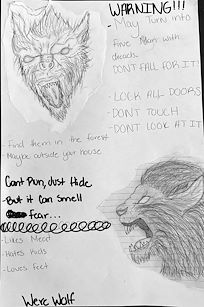 WARNING!!!
- May Turn into
Fine Man with
dreads.
DON'T FALL FOR IT!
- LOCK ALL DOORS
- DON'T TOUCH
- DON'T LOOK AT IT
- Find them in the forest
Maybe outside your house
Can't Run, Just Hide
- But it Can Smell
Fear...
- Likes Meat
- Hates Kids
- Loves feet
Were Wolf